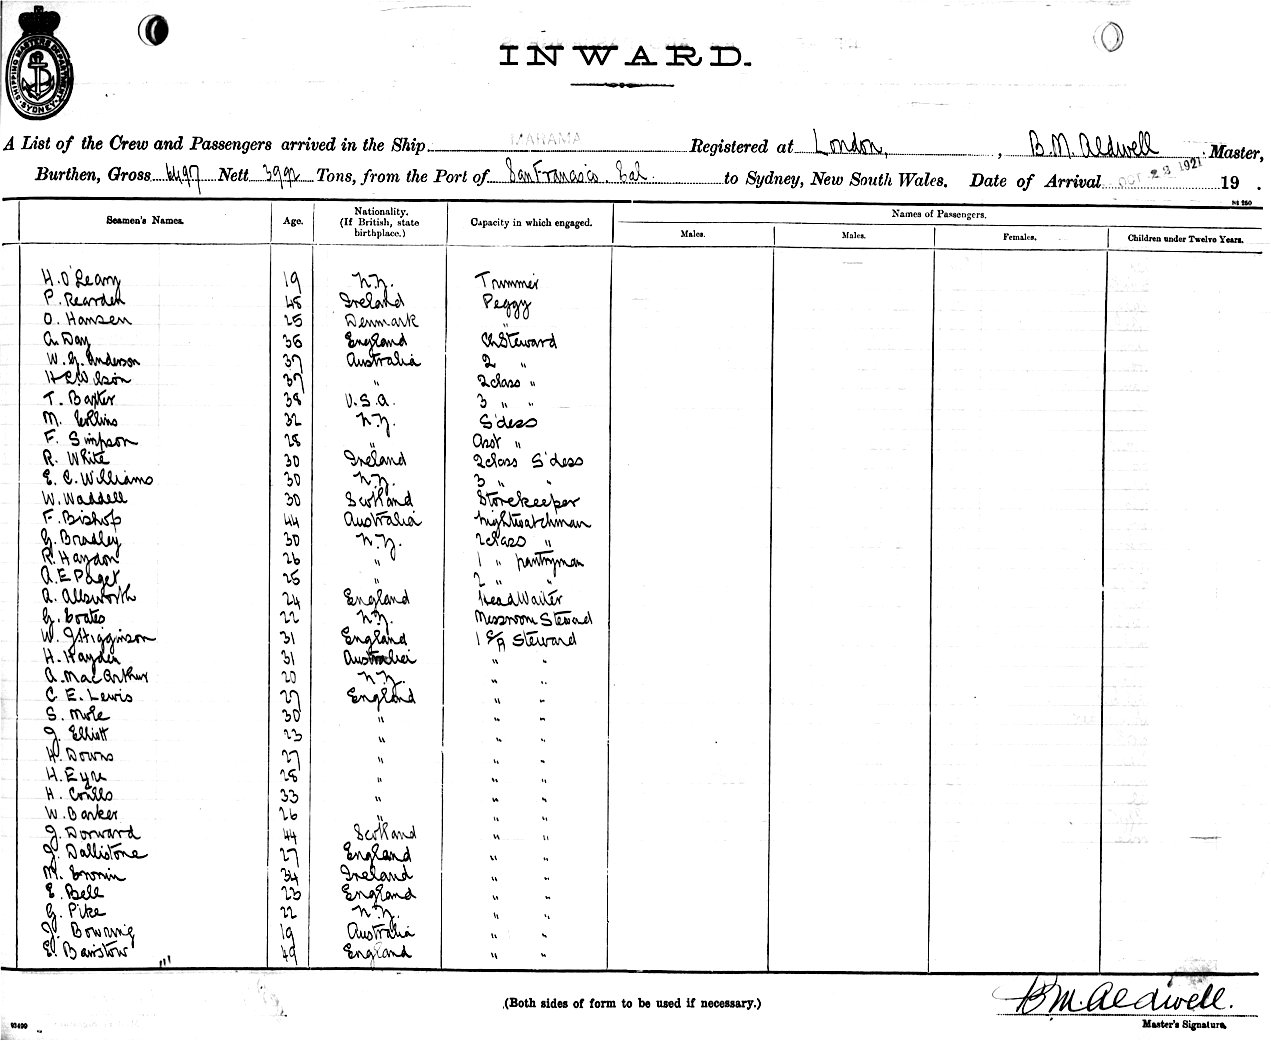 SHIPPING MASTERS DEPARTMENT SYDNEY
INWARD.
A List of the Crew and Passengers arrived in the Ship MARAMA Registered at London, , B.M. Aldwell Master,
Burthen, Gross 6497 Nett 3992 Tons, from the Port of San Francisco. Cal. to Sydney, New South Wales. Date of Arrival OCT 1921 19 .
Seamen's Names. Age. Nationality. (If British, state birthplace.) Capacity in which engaged. Names of Passengers.
Males. Males. Females. Children under Twelve Years.
H. O'Leary 19 N.Z. Trimmer
P. Rearden 48 Ireland Peggy
O. Hansen 25 Denmark "
A. Day 36 England Ch Steward
W. G. Anderson 37 Australia 2 "
H C Wilson 37 " 2 class "
T. Baxter 38 U.S.A. 3 " "
M. Collins 32 N.Z. S'dess
F. Simpson 28 " Asst "
R. White 30 Ireland 2 class S'dess
E. C. Williams 30 N.Z. 3 " "
W. Waddell 30 Scotland Storekeeper
F. Bishop 44 Australia Nightwatchman
G. Bradley 30 N.Z. 2 class "
R. Haydon 26 " 1 " pantryman
A. E Paget 25 " 2 " "
A. Allsworth 24 England Head Waiter
G. Coates 22 N.Z. Messroom Steward
W. J Higginson 31 England 1 Steward
H. Hayden 31 Australia " "
A. MacArthur 20 N.Z. " "
C. E. Lewis 27 England " "
S. Mole 30 " " "
J. Elliott 23 " " "
H. Downs 27 " " "
H. Eyre 28 " " "
H. 33 " " "
W. Barker 26 " " "
J. Dorward 44 Scotland " "
J. Dallistone 27 England " "
M. Cronin 34 Ireland " "
E. Bell 23 England " "
G. Pike 22 N.Z. " "
J. Bowring 19 Australia " "
E. Bairstow 49 England " "
(Both sides of form to be used if necessary.)
B M. Aldwell.
Master's Signature.